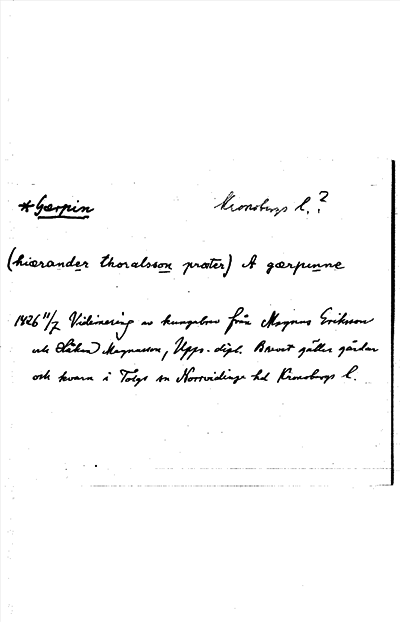 *Gærpin Kronobergs l.?
(hiærander thoralsson præter) A gærpinne
1426 11/7 Vidimering av kungabrev från Magnus Eriksson
och Håkan Magnusson, Upps. dipl. Brevet gäller gårdar
och kvarn i Tolgs sn Norrvidinge hd Kronobergs l.